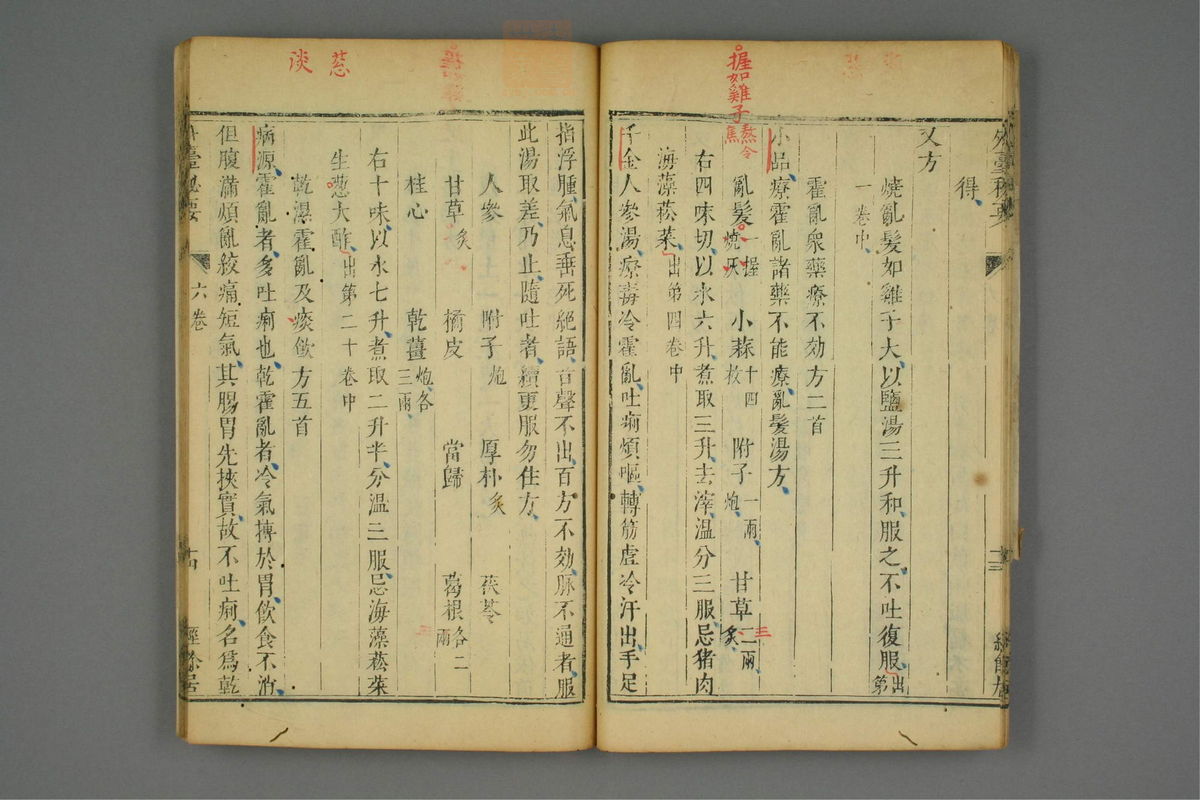 握如雞子
熬令
焦
外臺秘要
十三
經餘居
得
又方
燒亂髮如雞子大以鹽湯三升和服之不吐復服出第
一卷中
霍亂衆藥療不効方二首
小品療霍亂諸藥不能療亂髮湯方
亂髮一握燒灰 小蒜十四枚 附子一兩炮 甘草二兩炙
三
右四味切以水六升煮取三升去滓温分三服忌猪肉
海藻菘菜出第四卷中
千金人參湯療毒冷霍亂吐痢煩嘔轉筋虛冷汗出手足
指浮腫氣息垂死絕語音聲不出百方不効脉不通者服
此湯取差乃止隨吐者續更服勿住方
人參 附子炮 厚朴炙 茯苓
甘草炙 橘皮 當歸 葛根各二兩
桂心 乾薑炮各三兩
右十味以水七升煮取二升半分温三服忌海藻菘菜
生葱大酢出第二十卷中
葱
淡
乾濕霍亂及痰飲方五首
病源霍亂者多吐痢也乾霍亂者冷氣摶於胃飲食不消
但腹滿煩亂絞痛短氣其腸胃先挾實故不吐痢名爲乾
外臺秘要
六卷
十四
經餘居